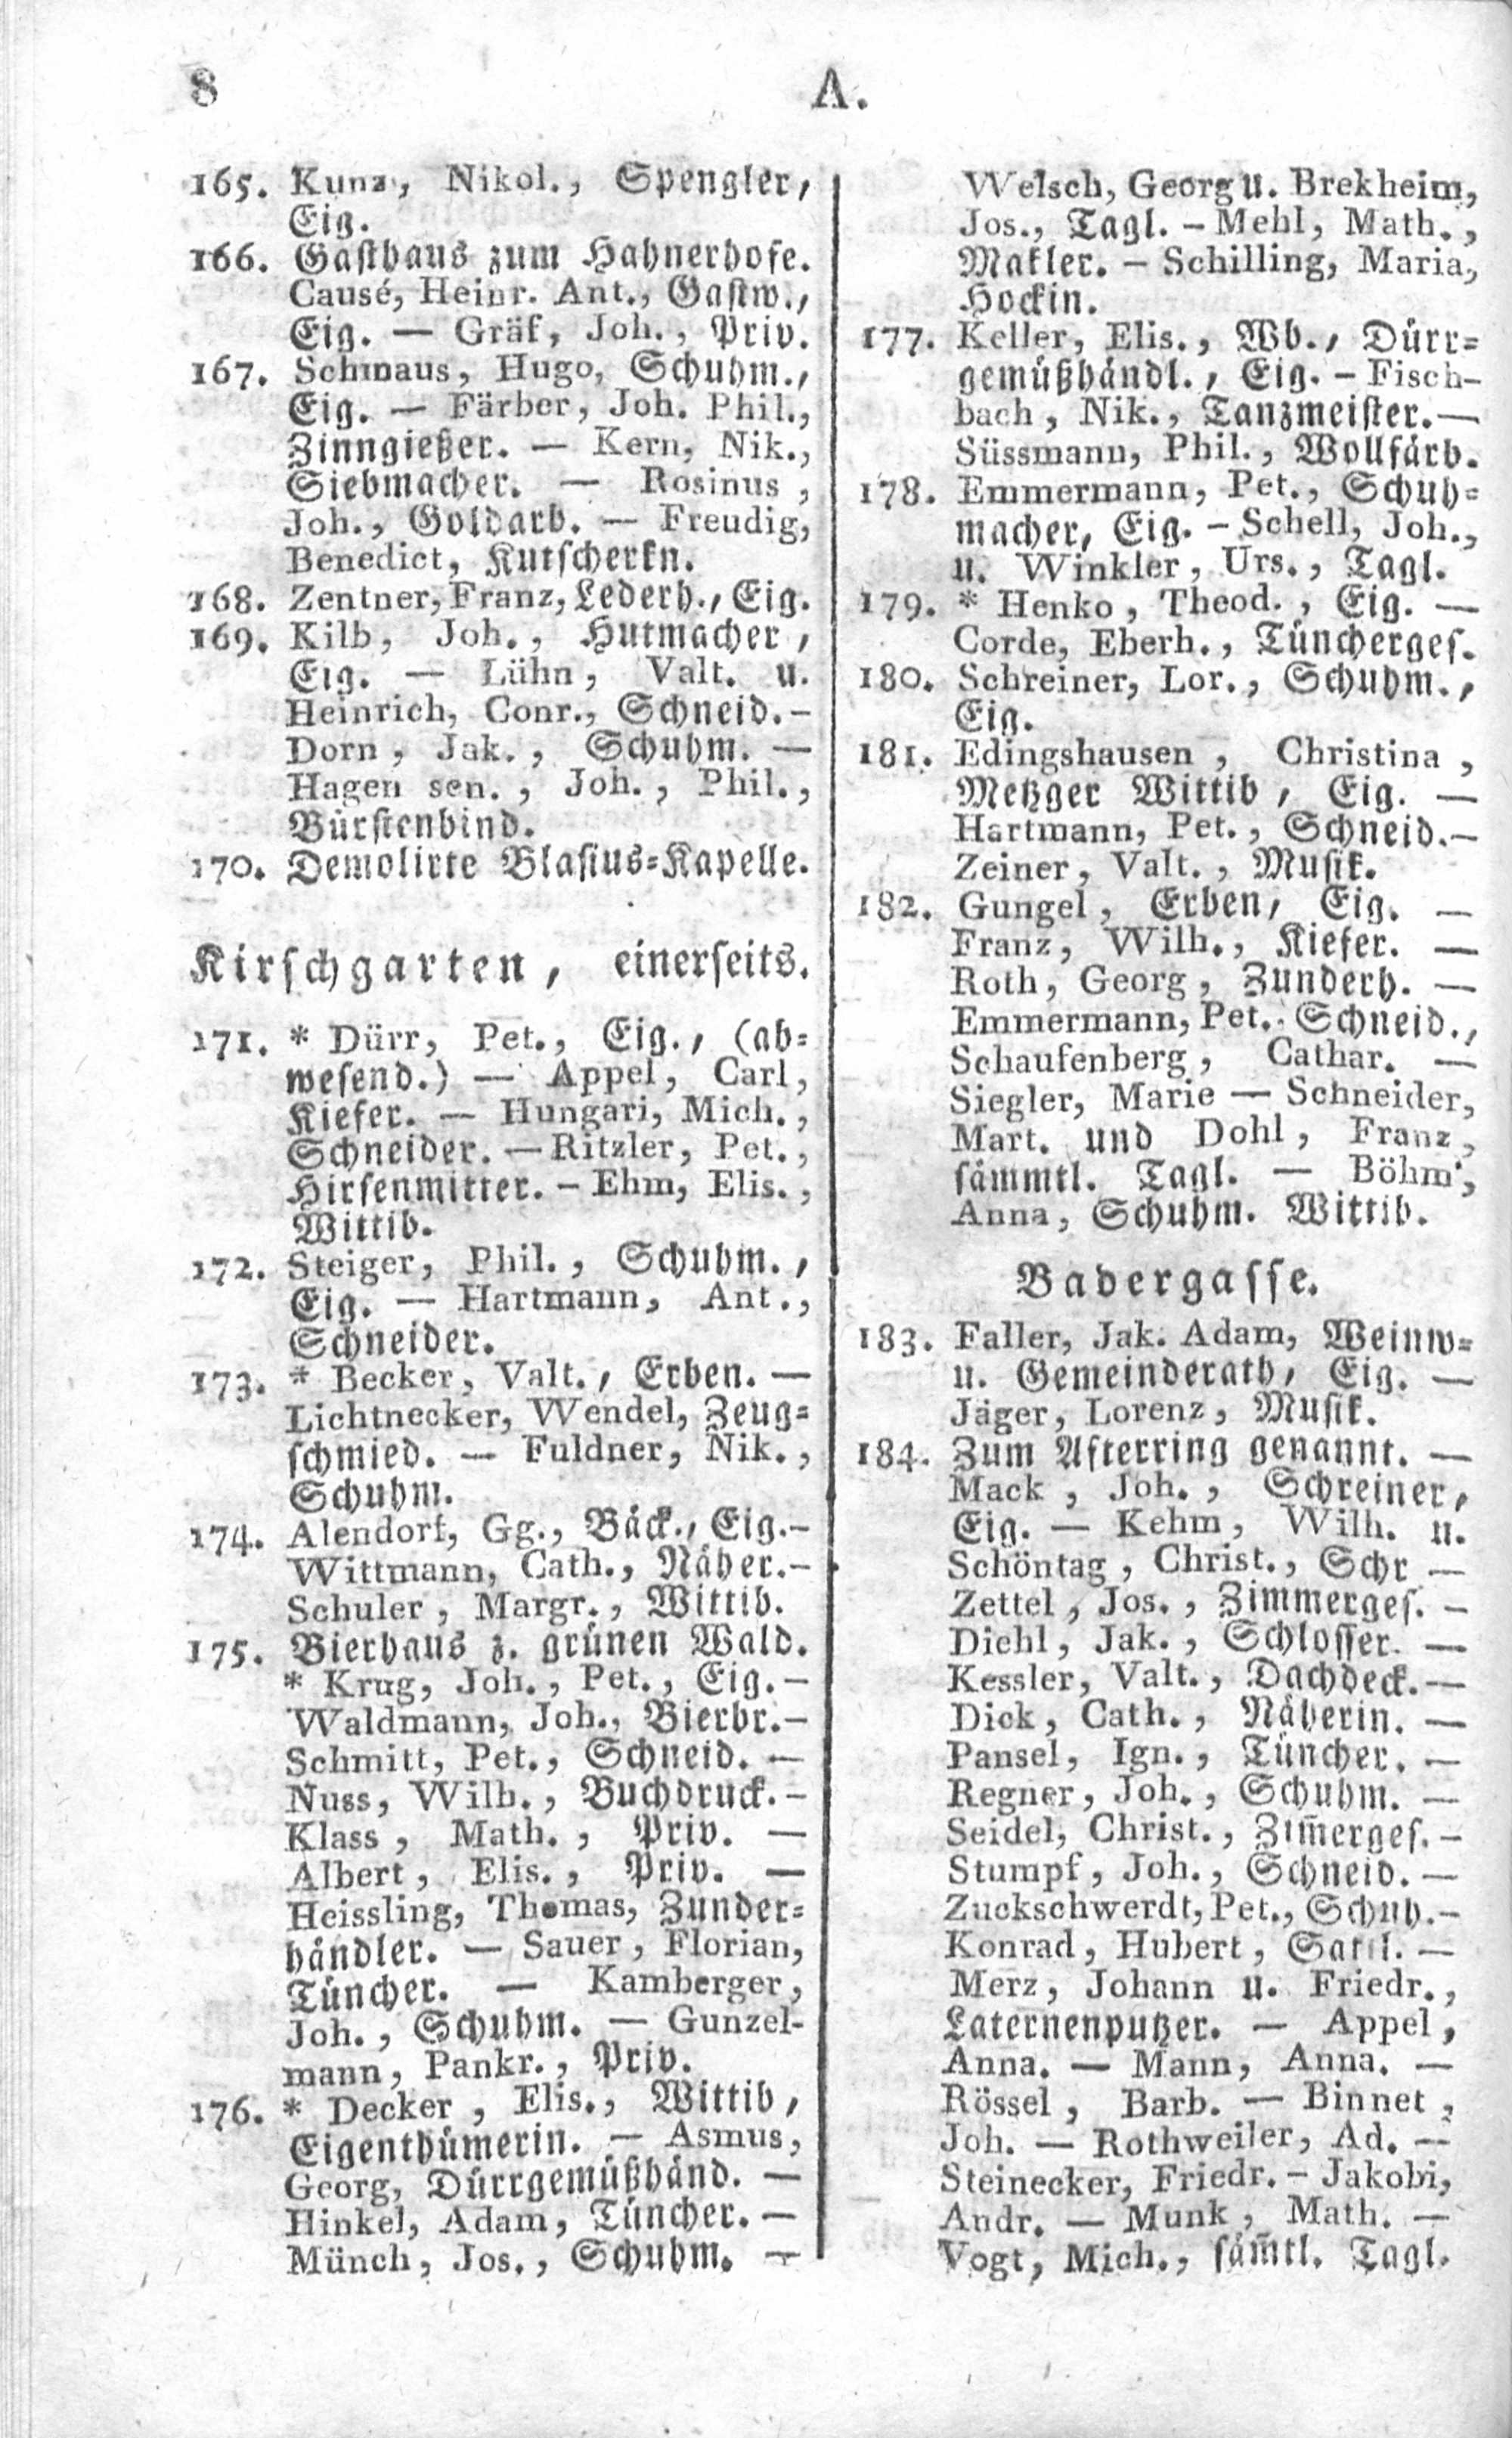 8
A.
165. Kunz, Nikol., Spengler,
Eig.
166. Gasthaus zum Hahnerhofe.
Causé, Heinr. Ant., Gastw.,
Eig. — Gräf, Joh., Priv.
167. Schmaus, Hugo, Schuhm.,
Eig. — Färber, Joh. Phil.,
Zinngießer. — Kern, Nik.,
Siebmacher. — Rosinus,
Joh., Goldarb. — Freudig,
Benedict, Kutscherkn.
168. Zentner, Franz, Lederh., Eig.
169. Kilb, Joh., Hutmacher,
Eig. — Lühn, Valt. u.
Heinrich, Conr., Schneid. –
Dorn, Jak., Schuhm. —
Hagen sen., Joh., Phil.,
Bürstenbind.
170. Demolirte Blasius-Kapelle.
Kirschgarten, einerseits.
171. * Dürr, Pet., Eig., (ab-
wesend.) — Appel, Carl,
Kiefer. — Hungari, Mich.,
Schneider. — Ritzler, Pet.,
Hirsenmitter. – Ehm, Elis.,
Wittib.
172. Steiger, Phil., Schuhm.,
Eig. — Hartmann, Ant.,
Schneider.
173. * Becker, Valt., Erben. —
Lichtnecker, Wendel, Zeug-
schmied. — Fuldner, Nik.,
Schuhm.
174. Alendorf, Gg., Bäck., Eig. –
Wittmann, Cath., Näher. –
Schuler, Margr., Wittib.
175. Bierhaus z. grünen Wald.
* Krug, Joh., Pet., Eig. –
Waldmann, Joh., Bierbr. –
Schmitt, Pet., Schneid. —
Nuss, Wilh., Buchdruck. –
Klass, Math., Priv. —
Albert, Elis., Priv. —
Heissling, Thomas, Zunder-
händler. — Sauer, Florian,
Tüncher. — Kamberger,
Joh., Schuhm. — Gunzel-
mann, Pankr., Priv.
176. * Decker, Elis., Wittib,
Eigenthümerin. — Asmus,
Georg, Dürrgemüßhänd. —
Hinkel, Adam, Tüncher. —
Münch, Jos., Schuhm. —
Welsch, Georg u. Brekheim,
Jos., Tagl. – Mehl, Math.,
Makler. – Schilling, Maria,
Hockin.
177. Keller, Elis., Wb., Dürr-
gemüßhändl., Eig. – Fisch-
bach, Nik., Tanzmeister. —
Süssmann, Phil., Wollfärb.
178. Emmermann, Pet., Schuh-
macher, Eig. – Schell, Joh.,
u. Winkler, Urs., Tagl.
179. * Henko, Theod., Eig. —
Corde, Eberh., Tüncherges.
180. Schreiner, Lor., Schuhm.,
Eig.
181. Edingshausen, Christina,
Metzger Wittib, Eig. —
Hartmann, Pet., Schneid. –
Zeiner, Valt., Musik.
182. Gungel, Erben, Eig. —
Franz, Wilh., Kiefer. —
Roth, Georg, Zunderh. —
Emmermann, Pet., Schneid.,
Schaufenberg, Cathar. —
Siegler, Marie — Schneider,
Mart. und Dohl, Franz,
sämmtl. Tagl. — Böhm,
Anna, Schuhm. Wittib.
Badergasse.
183. Faller, Jak. Adam, Weinw-
u. Gemeinderath, Eig. —
Jäger, Lorenz, Musik.
184. Zum Afterring genannt. —
Mack, Joh., Schreiner,
Eig. — Kehm, Wilh. u.
Schöntag, Christ., Schr —
Zettel, Jos., Zimmerges. –
Diehl, Jak., Schlosser. —
Kessler, Valt., Dachdeck. —
Dick, Cath., Näherin. —
Pansel, Ign., Tüncher. —
Regner, Joh., Schuhm. —
Seidel, Christ., Zim̄erges. –
Stumpf, Joh., Schneid. —
Zuckschwerdt, Pet., Schuh. –
Konrad, Hubert, Sattl. —
Merz, Johann u. Friedr.,
Laternenputzer. — Appel,
Anna. — Mann, Anna. —
Rössel, Barb. — Binnet,
Joh. — Rothweiler, Ad. —
Steinecker, Friedr. – Jakobi,
Andr. — Munk, Math. —
Vogt, Mich., säm̄tl. Tagl.